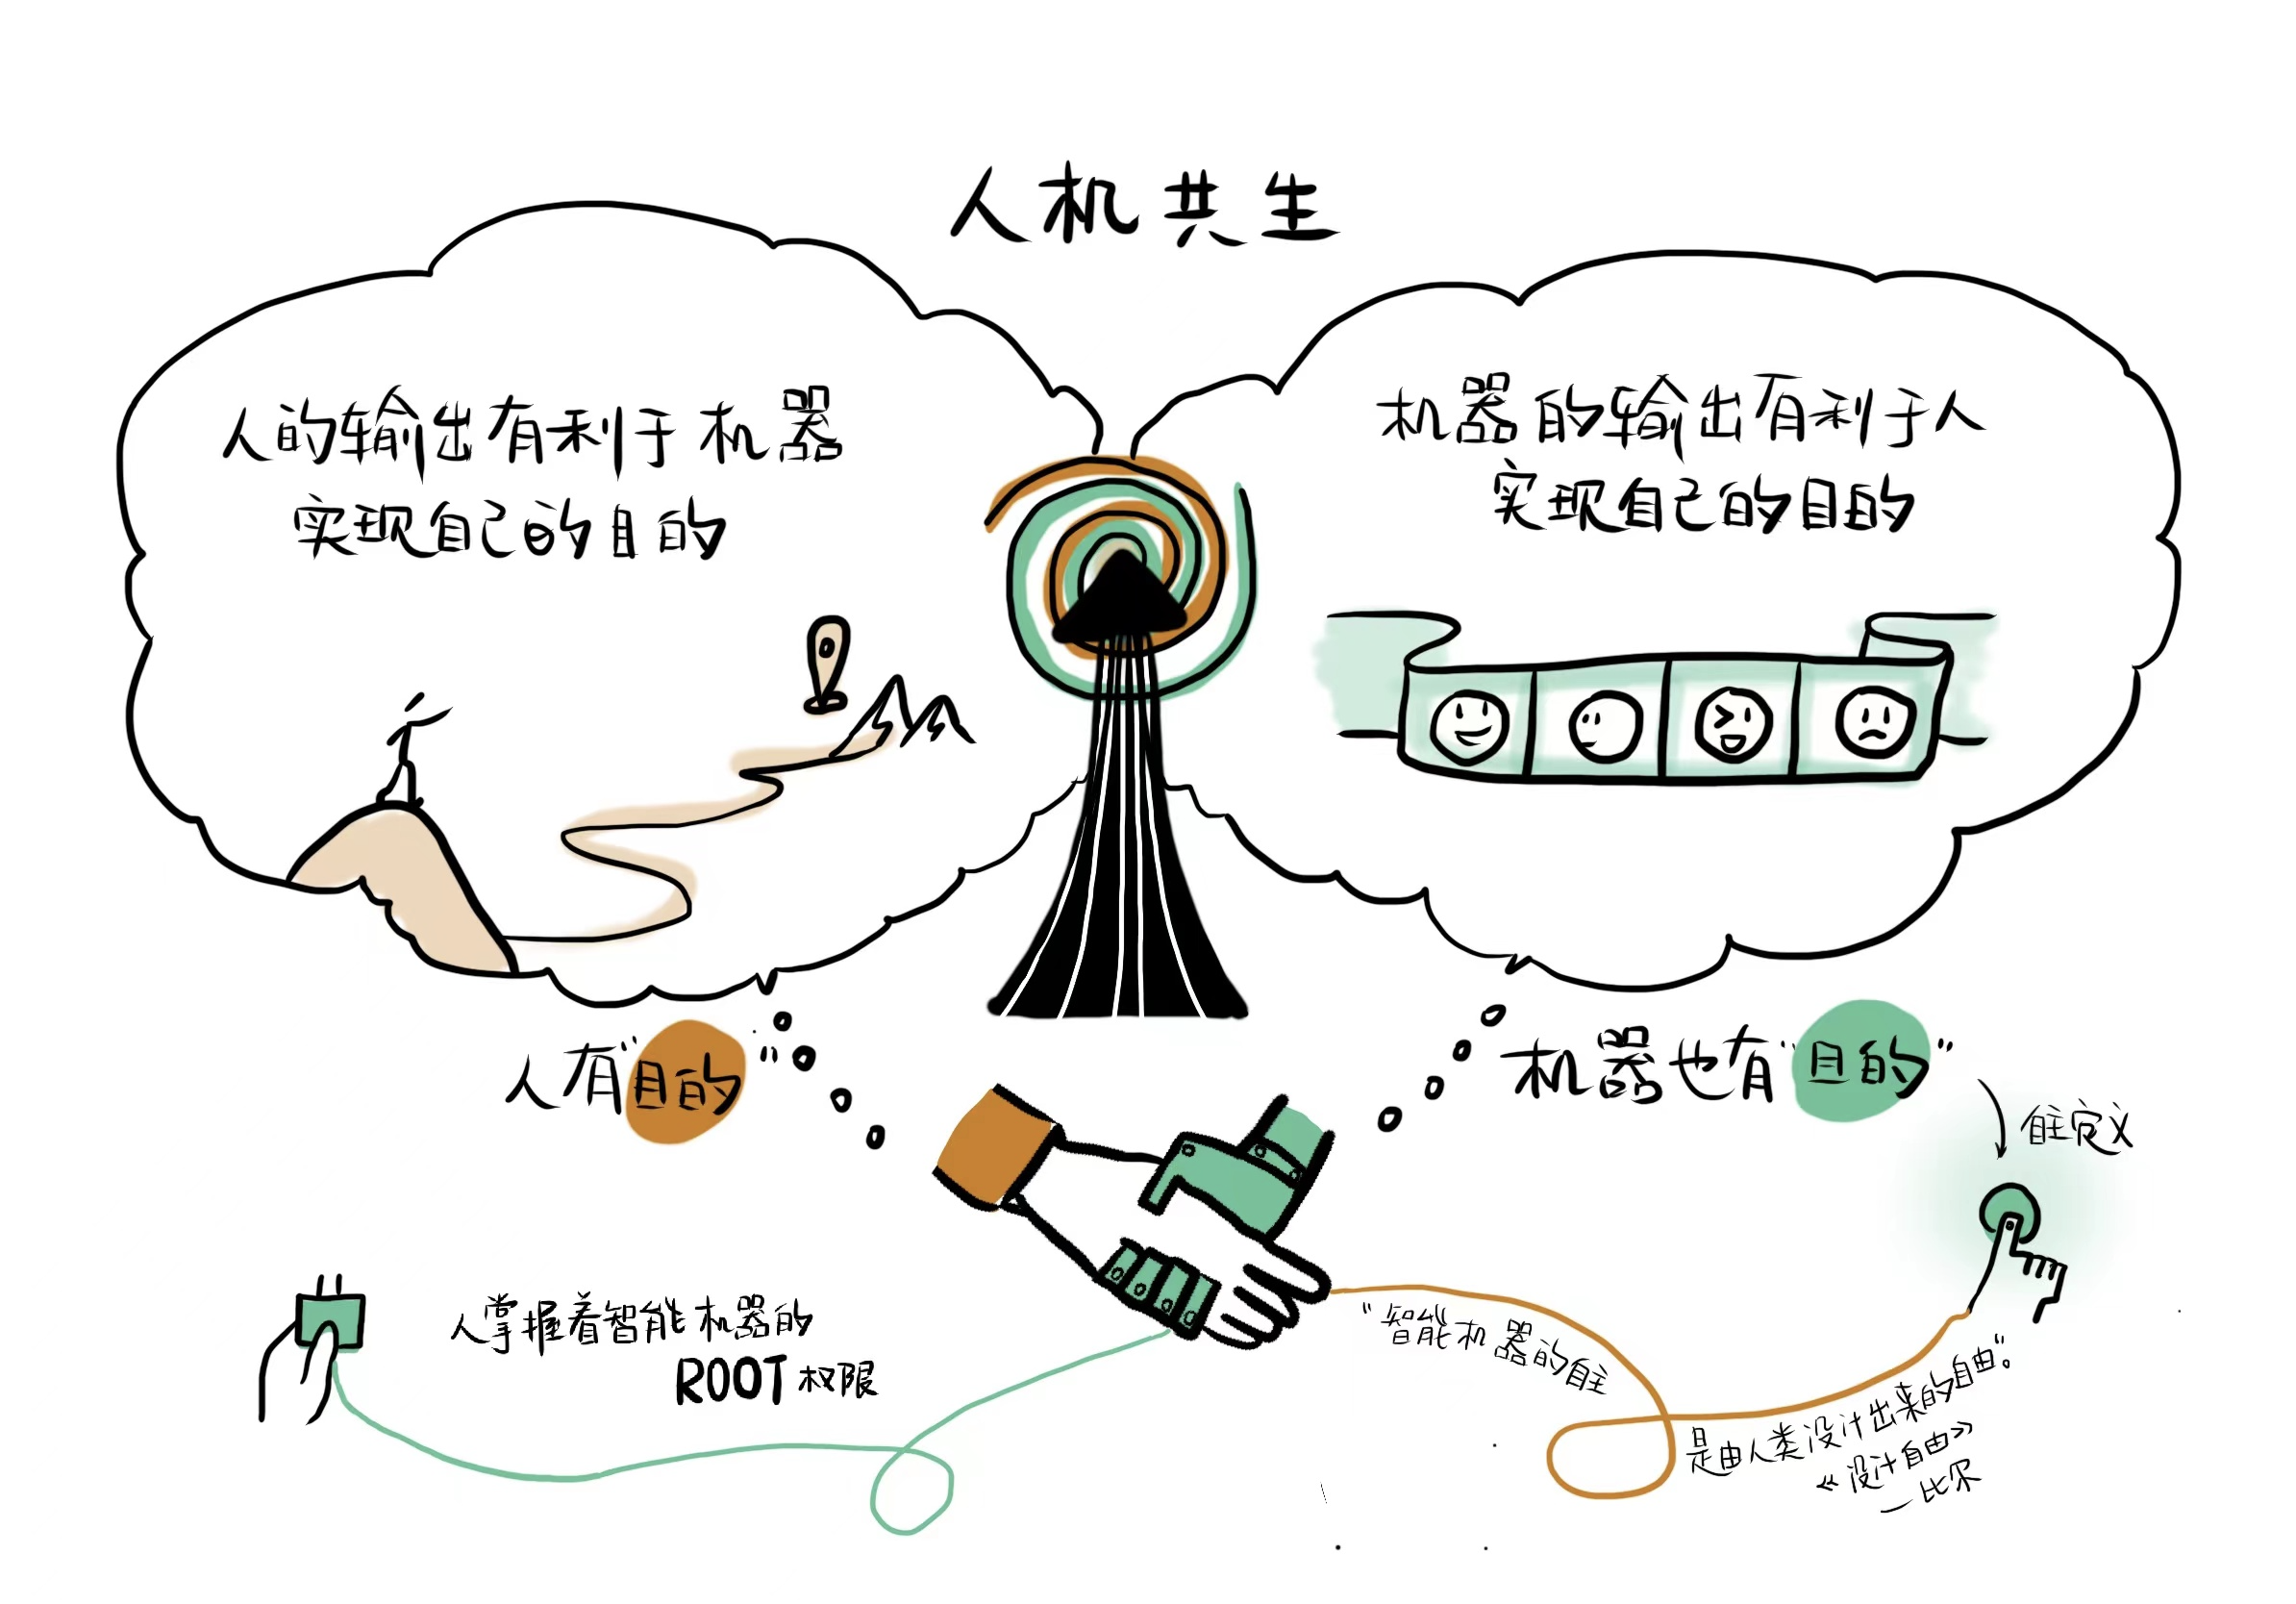 人机共生
人的输出有利于机器
实现自己的目的
机器的输出有利于人
实现自己的目的
人有"目的"
机器也有"目的"
自主定义
人掌握着智能机器的
ROOT权限
"智能机器的自主
是由人类设计出来的自由"。
《设计自由》
—比尔